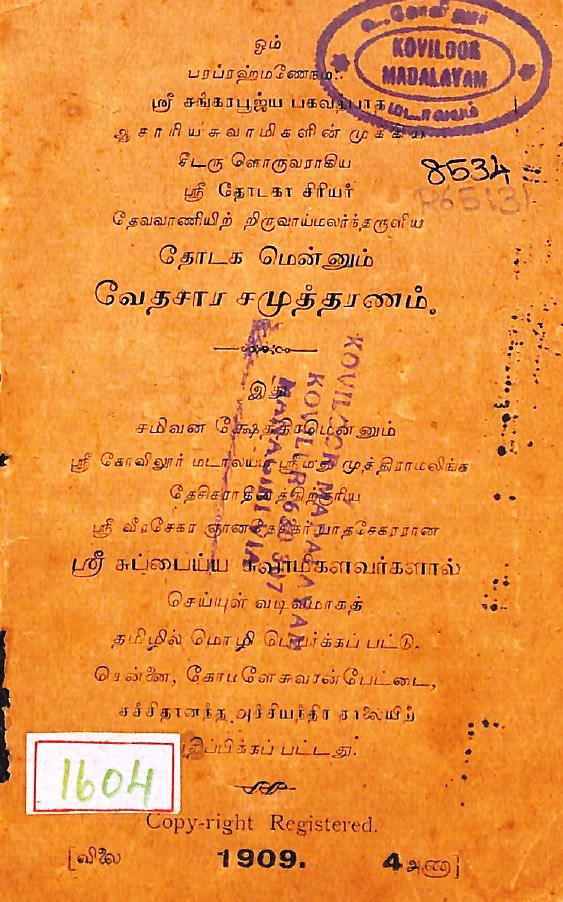 உ. கோவிலூர்
KOVILOOR
MADALAYAM
மடாலயம்
ஓம்
பரப்ரஹ்மணேநம:.
ஸ்ரீ சங்கரபூஜ்ய பகவத்பாத
ஆசாரியசுவாமிகளின் முக்கிய
சீடரு ளொருவராகிய
8534
R65131
ஸ்ரீ தோடகா சிரியர்
தேவவாணியிற் றிருவாய்மலர்ந்தருளிய
தோடக மென்னும்
வேதசார சமுத்தரணம்.
இது
சமிவன க்ஷேத்திரமென்னும்
ஸ்ரீ கோவிலூர் மடாலயம் ஸ்ரீமத் முத்திராமலிங்க
தேசிகராதீனத்திற்குரிய
ஸ்ரீ வீரசேகர ஞானதேசிகர்
ஸ்ரீ சுப்பைய்ய சுவாமிகளவர்களால்
செய்யுள் வடிவமாகத்
தமிழில் மொழி பெயர்க்கப் பட்டு.
சென்னை, கோமளேசுவரன்பேட்டை,
சச்சிதானந்த அச்சியந்திர சாலையிற்
பதிப்பிக்கப் பட்டது.
KOVILOOR MADALAYAM
KOVILUR 630 307
1604
Copy-right Registered.
[விலை 1909. 4 அணா]